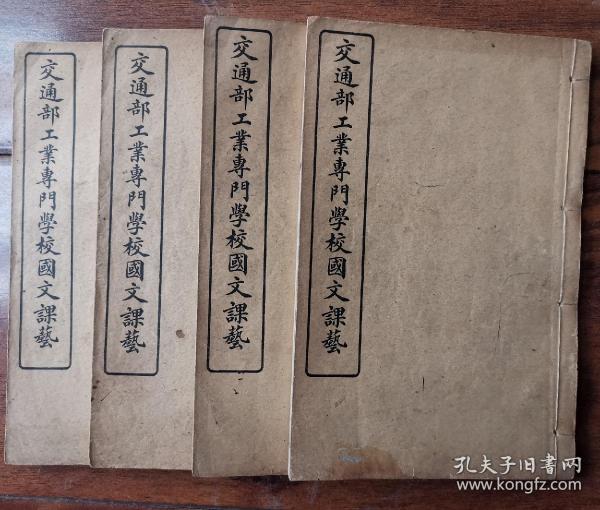 交通部工業專門學校國文課藝
交通部工業專門學校國文課藝
交通部工業專門學校國文課藝
交通部工業專門學校國文課藝
孔夫子旧書网
www.kongfz.com